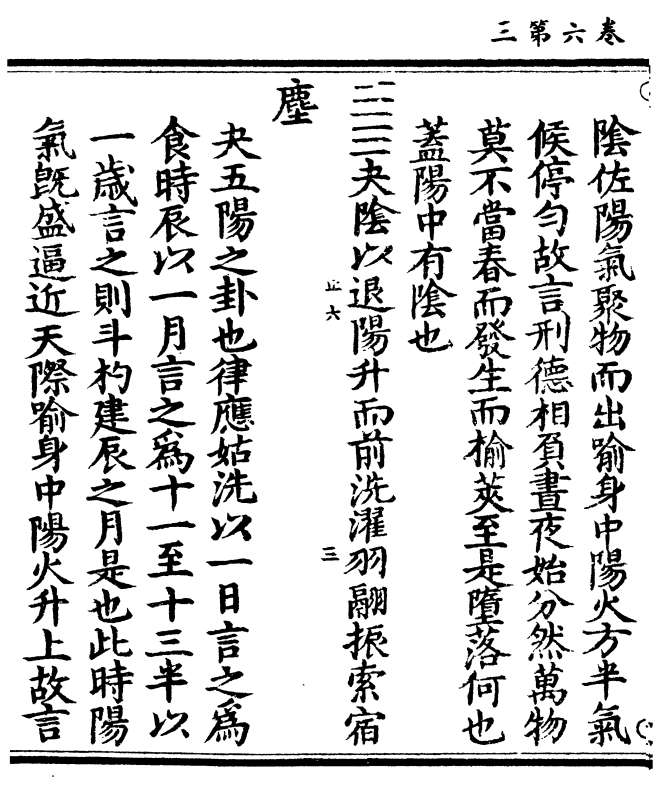 三第六卷
陰佐陽氣聚物而出喻身中陽火方半氣
候停勻故言刑德相負晝夜始分然萬物
莫不當春而發生而榆莢至是墮落何也
蓋陽中有陰也
夬陰以退陽升而前洗濯羽翮振索宿
正六
三
塵
夬五陽之卦也律應姑洗以一日言之為
食時辰以一月言之為十一至十三半以
一歲言之則斗杓建辰之月是也此時陽
氣旣盛逼近天際喻身中陽火升上故言